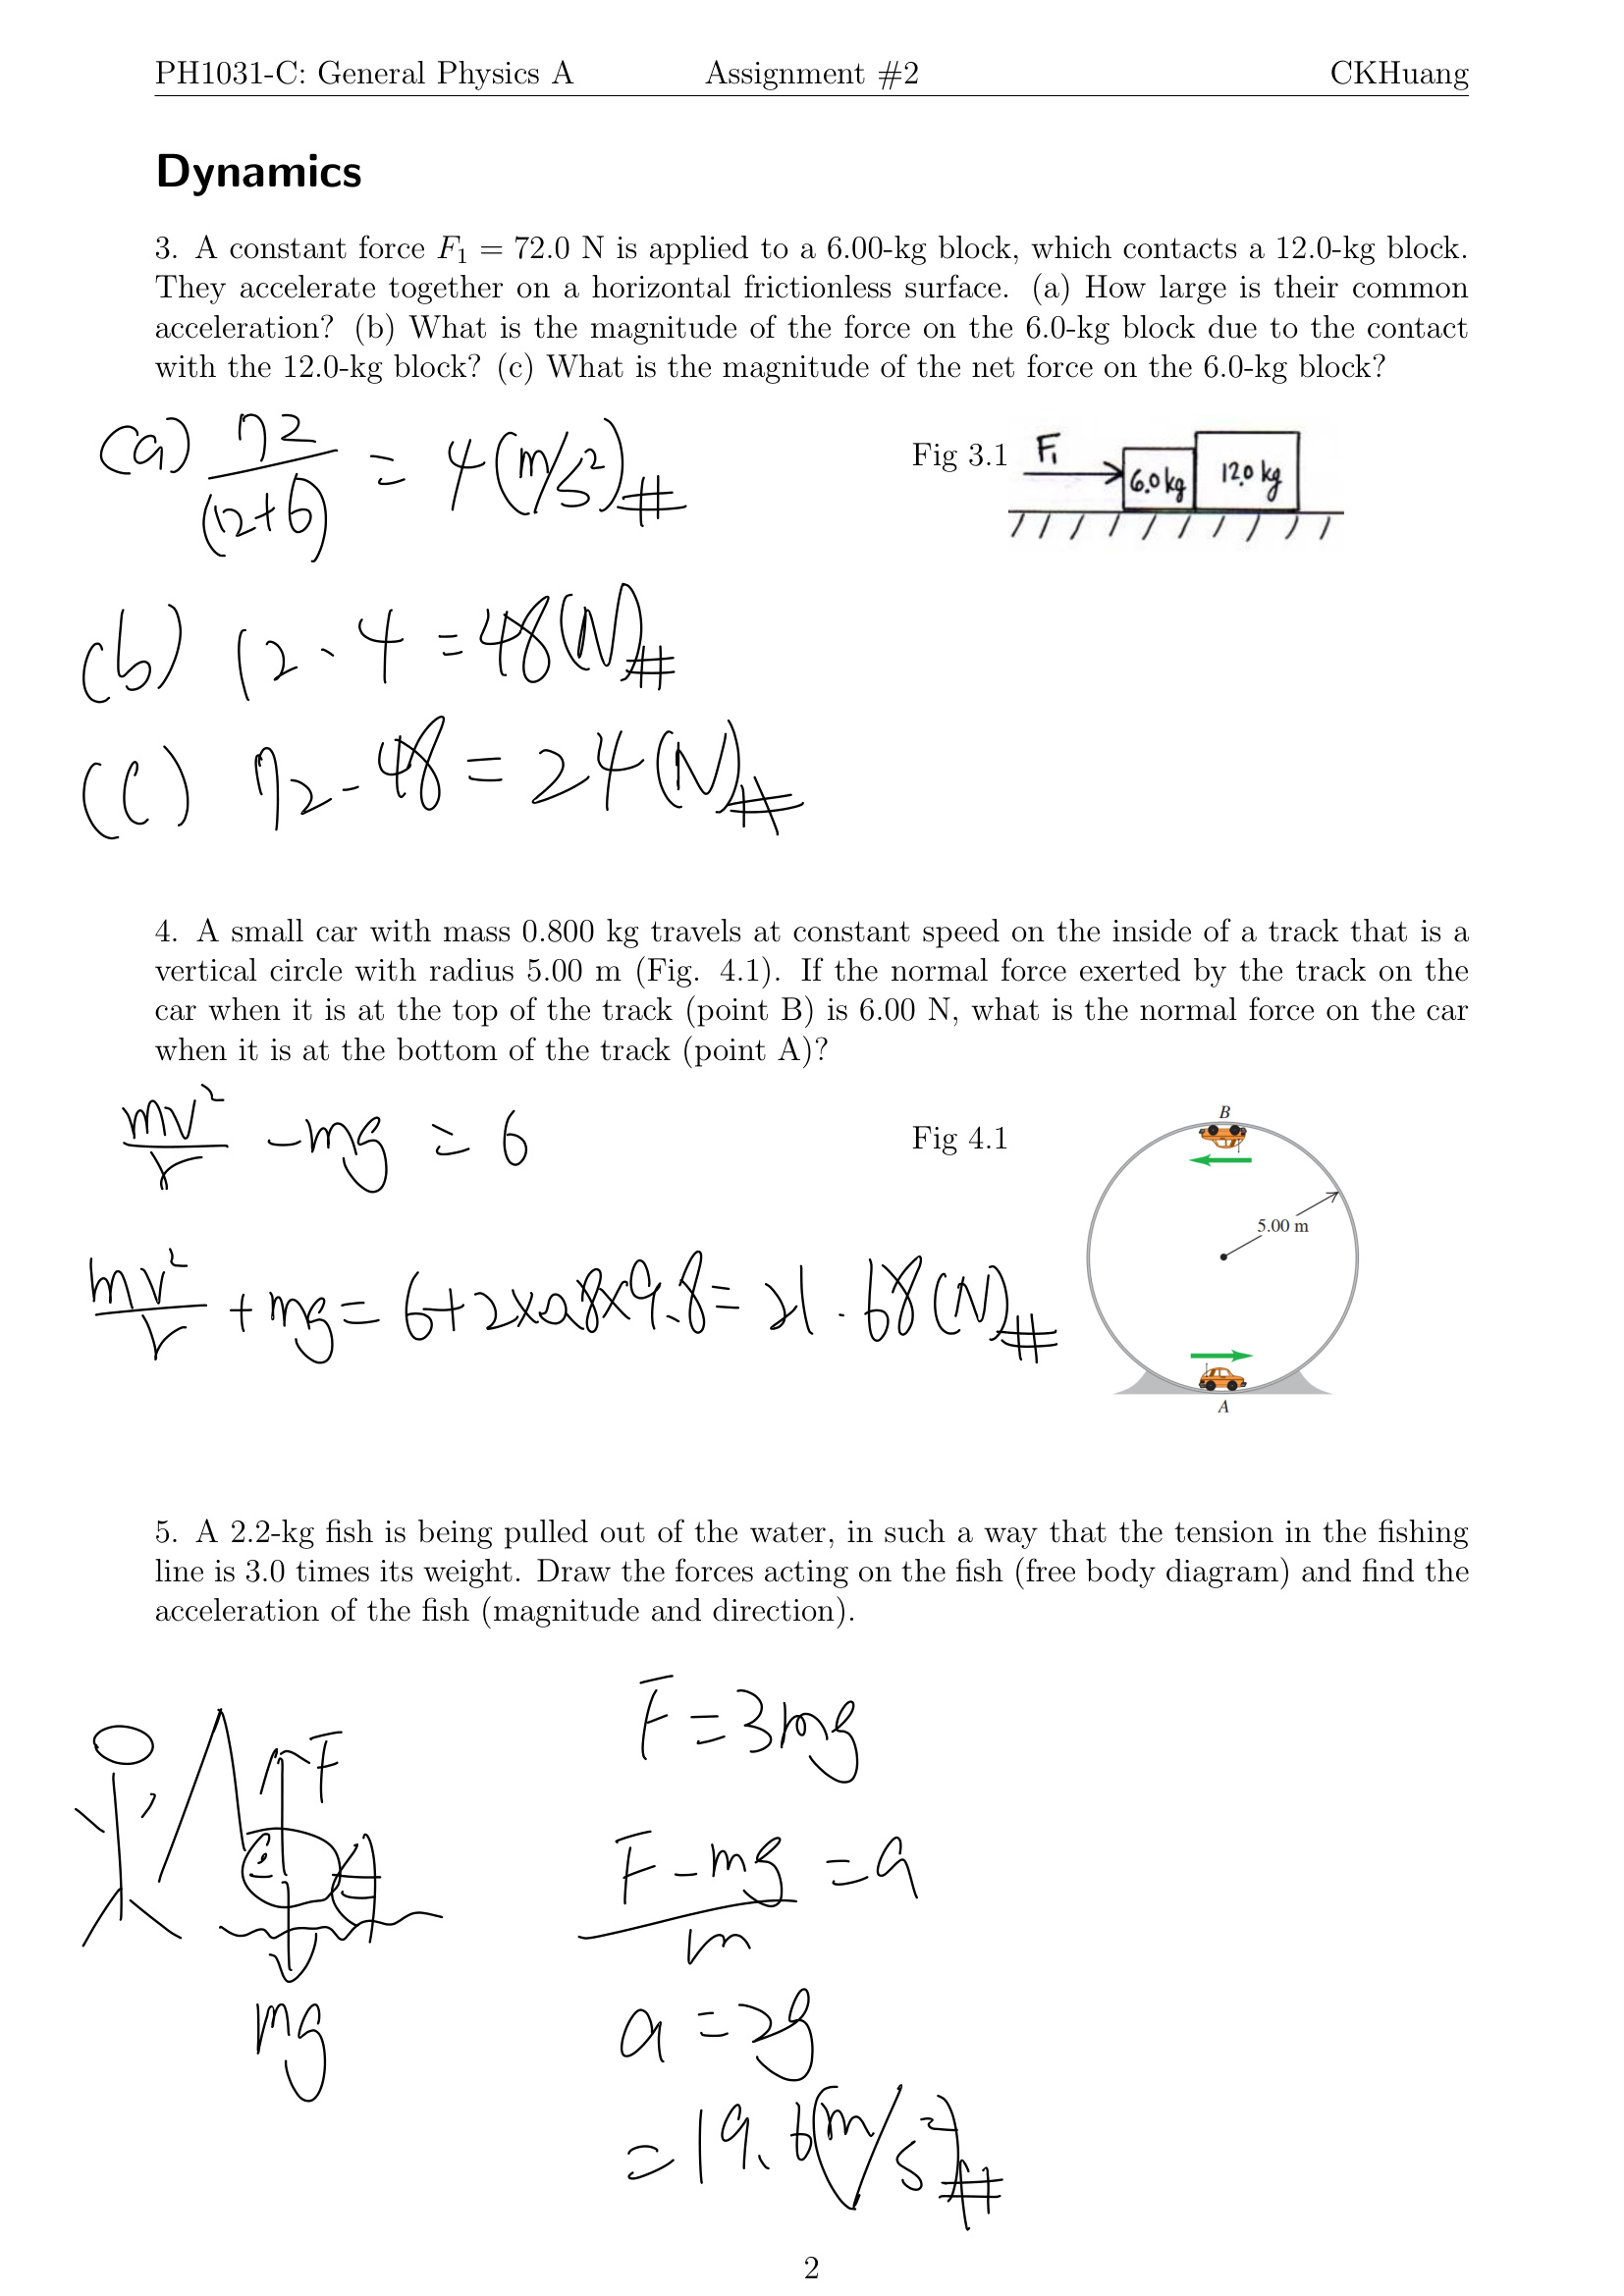 PH1031-C: General Physics A Assignment #2 CKHuang
Dynamics
3. A constant force F₁ = 72.0 N is applied to a 6.00-kg block, which contacts a 12.0-kg block.
They accelerate together on a horizontal frictionless surface. (a) How large is their common
acceleration? (b) What is the magnitude of the force on the 6.0-kg block due to the contact
with the 12.0-kg block? (c) What is the magnitude of the net force on the 6.0-kg block?
(a) 72/(12+6) = 4 (m/s²)#
Fig 3.1 F₁ 6.0 kg 12.0 kg
(b) 12 · 4 = 48 (N)#
(c) 72 - 48 = 24 (N)#
4. A small car with mass 0.800 kg travels at constant speed on the inside of a track that is a
vertical circle with radius 5.00 m (Fig. 4.1). If the normal force exerted by the track on the
car when it is at the top of the track (point B) is 6.00 N, what is the normal force on the car
when it is at the bottom of the track (point A)?
mv²/r - mg = 6
Fig 4.1
B
5.00 m
mv²/r + mg = 6+2×0.8×9.8 = 21.68 (N)#
A
5. A 2.2-kg fish is being pulled out of the water, in such a way that the tension in the fishing
line is 3.0 times its weight. Draw the forces acting on the fish (free body diagram) and find the
acceleration of the fish (magnitude and direction).
F
mg
F = 3mg
F - mg/m = a
a = 2g
= 19.6 (m/s²)#
2